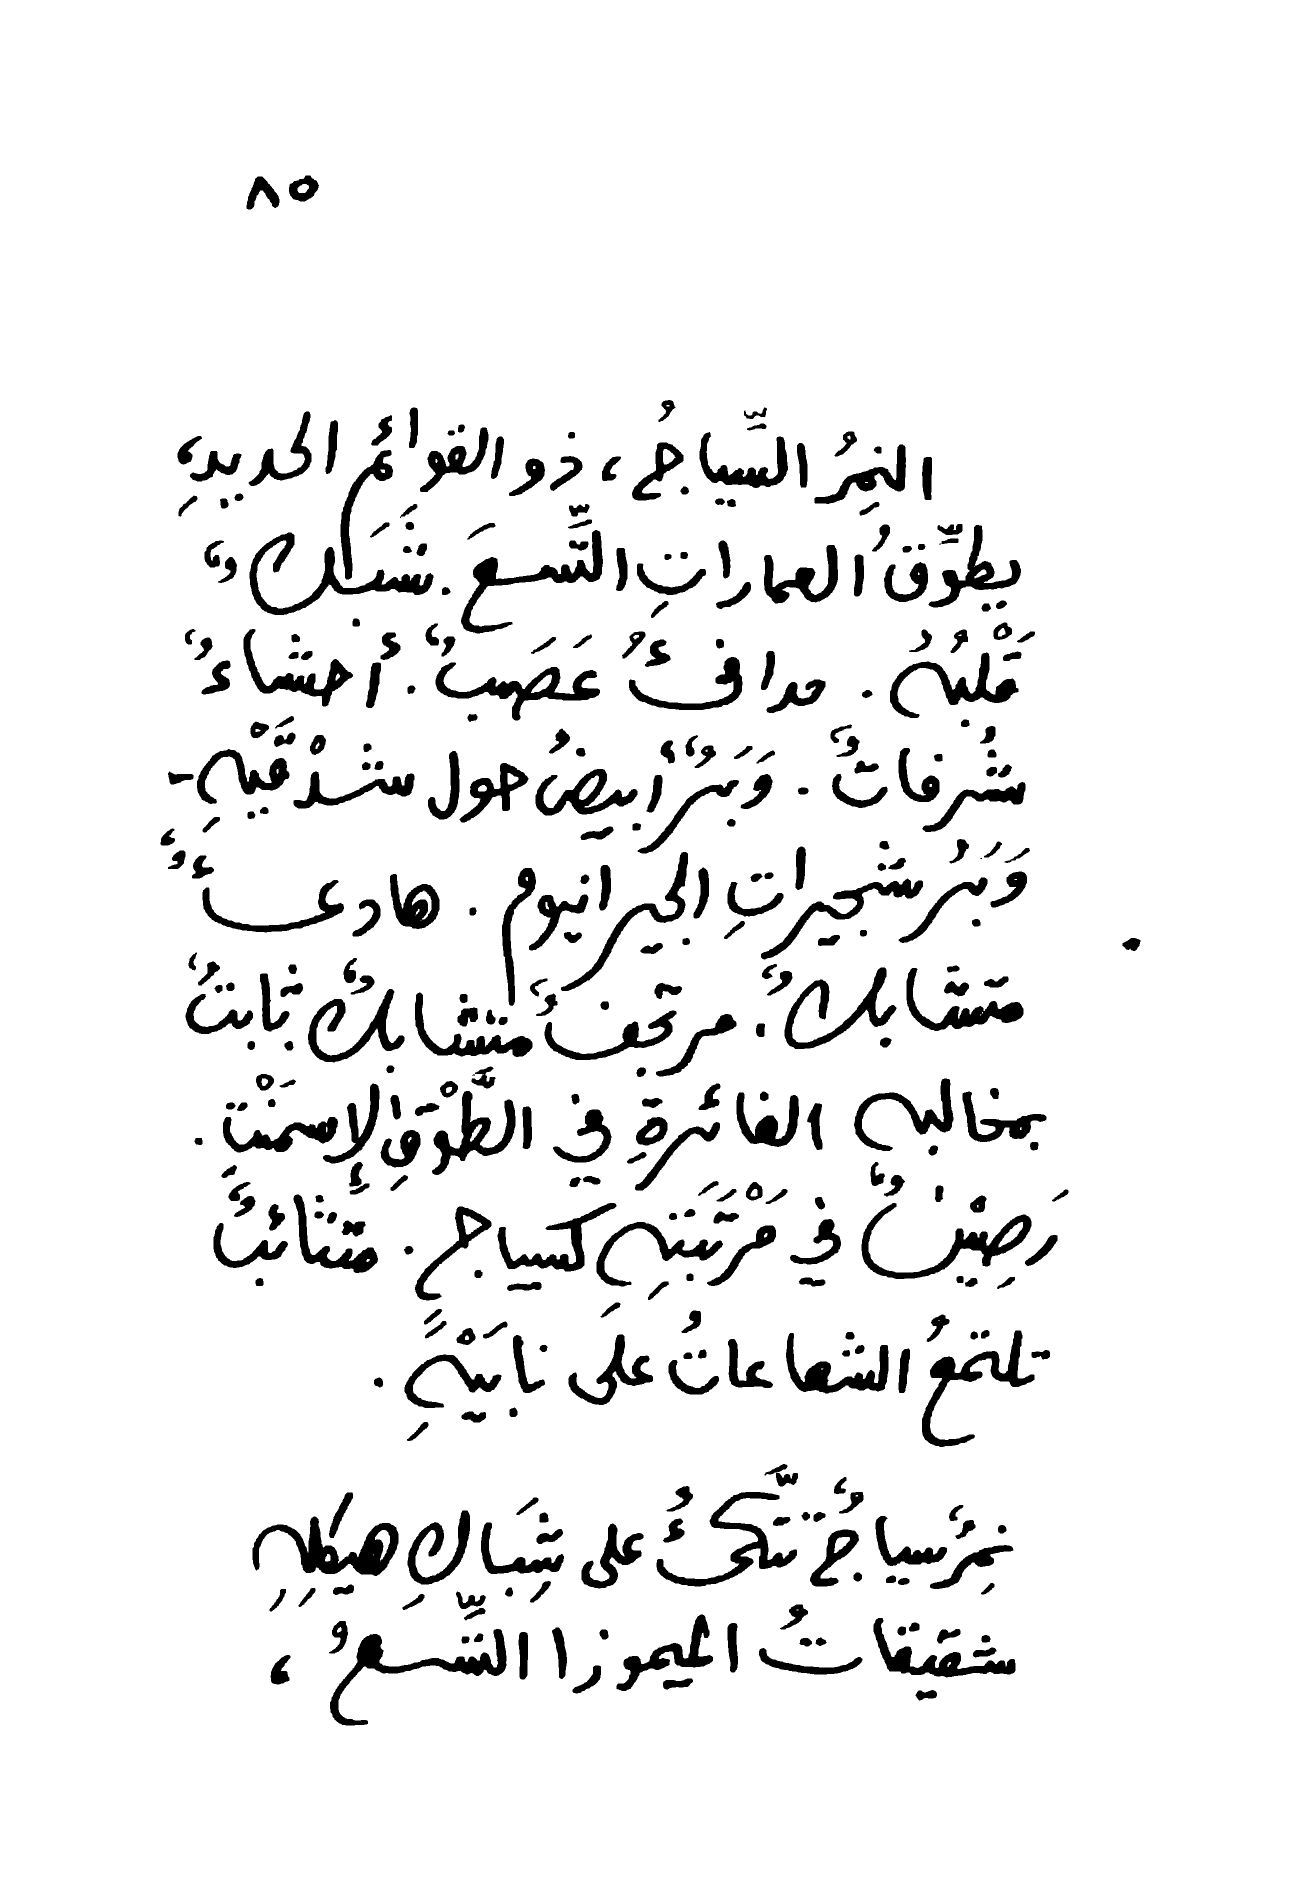 ٨٥
النمِرُ السِّياجُ، ذو القوائمِ الحديدِ،
يطوِّقُ العماراتِ التِّسعَ. شَبَكٌ
قَلْبُهُ. مدافىءُ عَصَبٌ. أحشاءٌ
شُرفاتٌ. وَبَرٌ أبيضُ حول شدْقَيْهِ -
وَبَرُ شجيراتِ الجيرانيوم. هادىءٌ
متشابكٌ. مرتجفٌ متشابكٌ ثابتٌ
بمخالبه الغائرةِ في الطَّوْقِ الإسمَنْتِ.
رَصِيْنٌ في مَرْتَبَتِهِ كسياجٍ. متثائبٌ
تلتمعُ الشعاعاتُ على نابَيْهِ.
نمِرٌ سياجٌ تتَّكىُٔ على شِبَاكِ هيكلِهِ
شقيقاتُ الميموزا التِّسعُ،